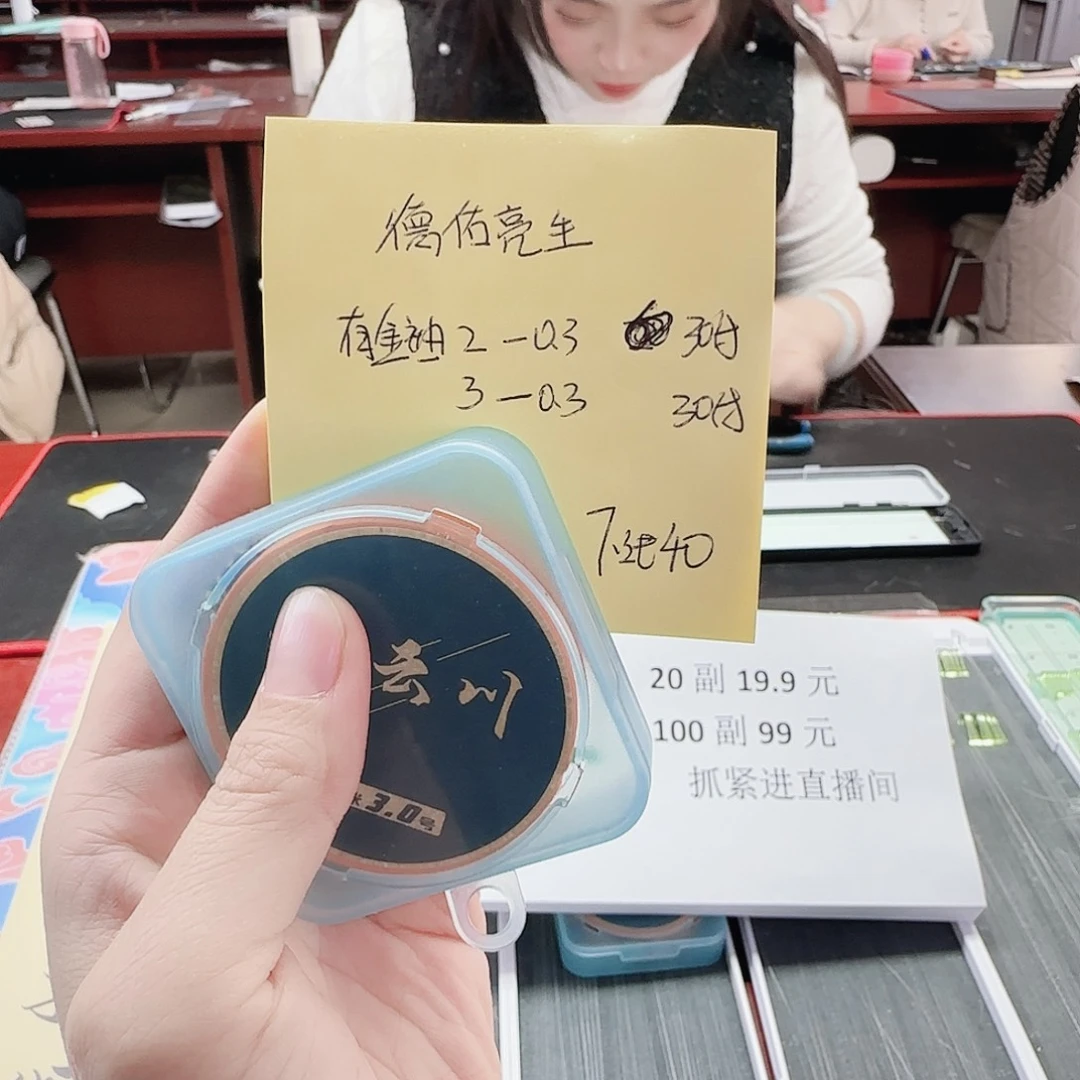 德佑亮生
有金袖 2 — 0.3 30付
3 — 0.3 30付
40
云川
3.0号
20 副 19.9 元
100 副 99 元
抓紧进直播间